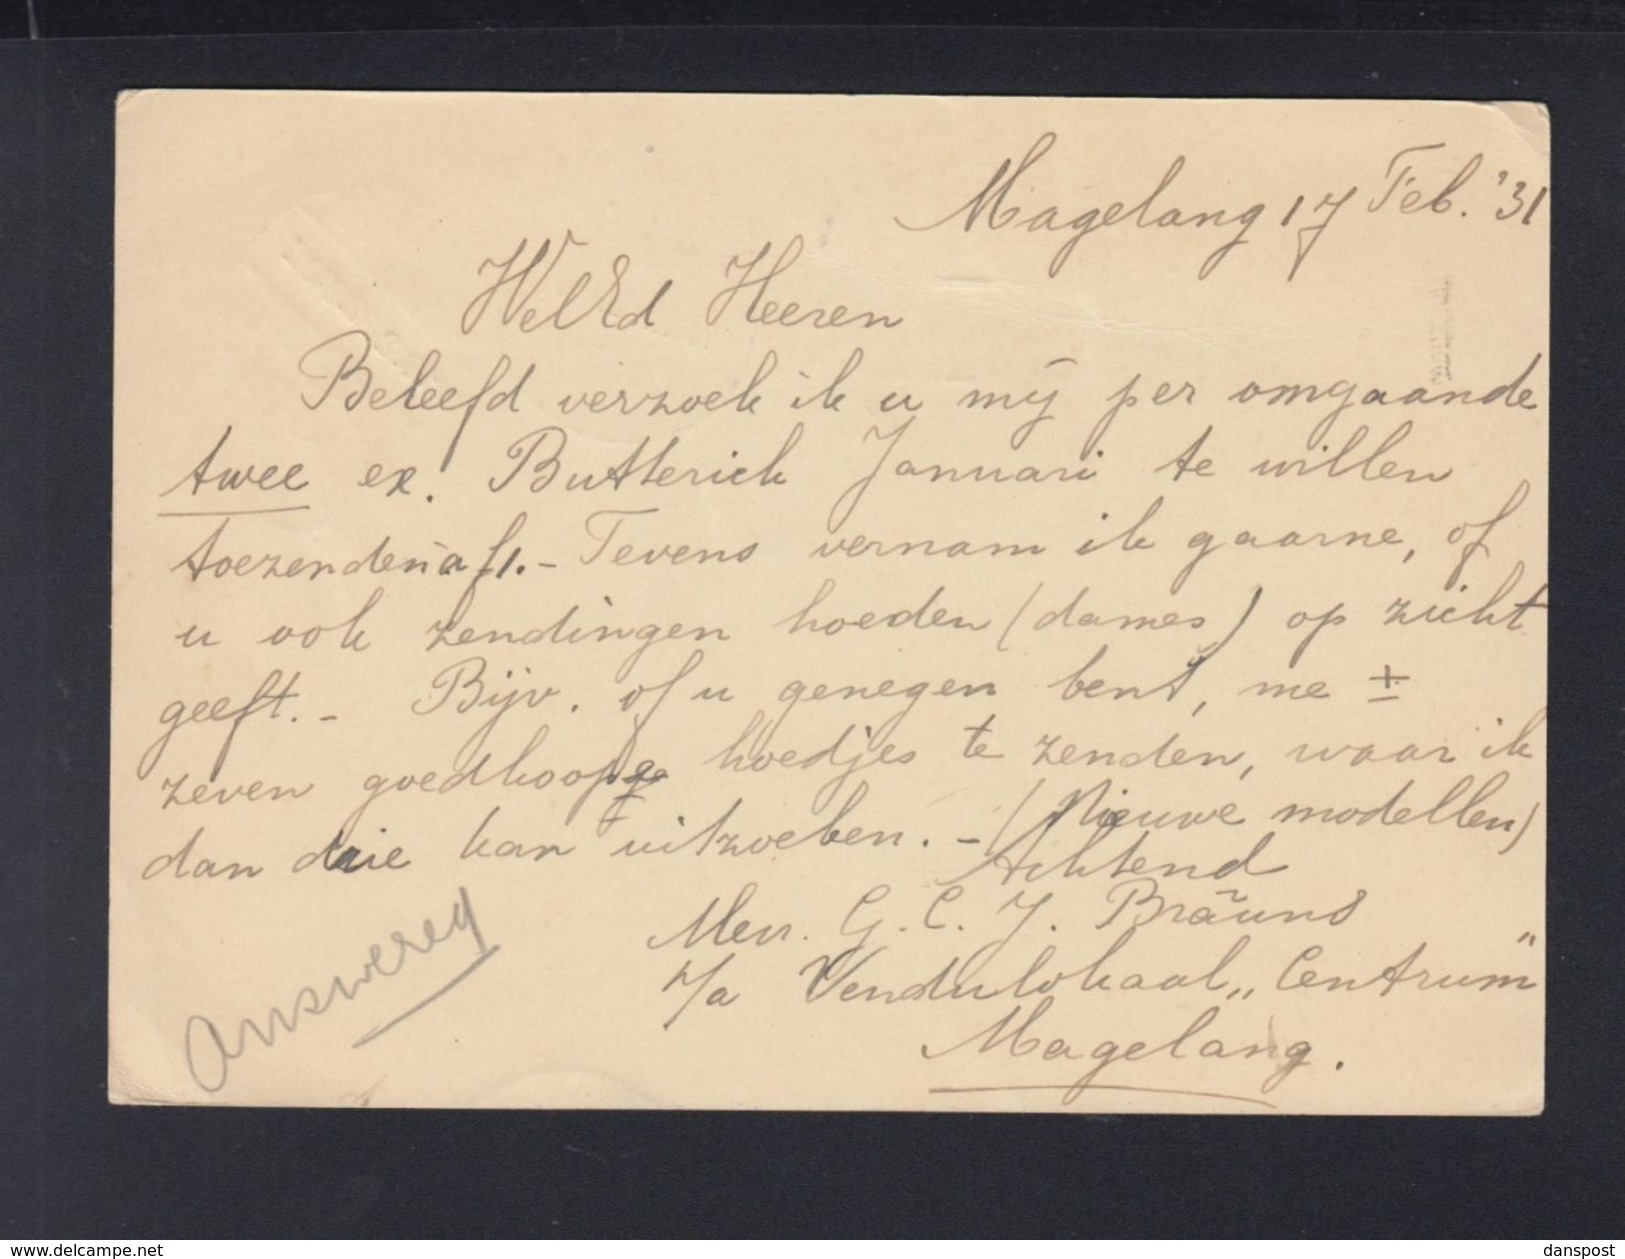 Magelang 17 Feb. '31
WelEd Heeren
Beleefd verzoek ik u mij per omgaande
twee ex. Butterick Januari te willen
toezenden à f1.- Tevens vernam ik gaarne, of
u ook zendingen hoeden (dames) op zicht
geeft.- Bijv. of u genegen bent, me ±
zeven goedkoope hoedjes te zenden, waar ik
dan drie kan uitzoeken. - (Nieuwe modellen)
Achtend
Mevr. G. C. J. Bräuns
p/a Vendulokaal „Centrum"
Magelang.
Answered
www.delcampe.net
danspost